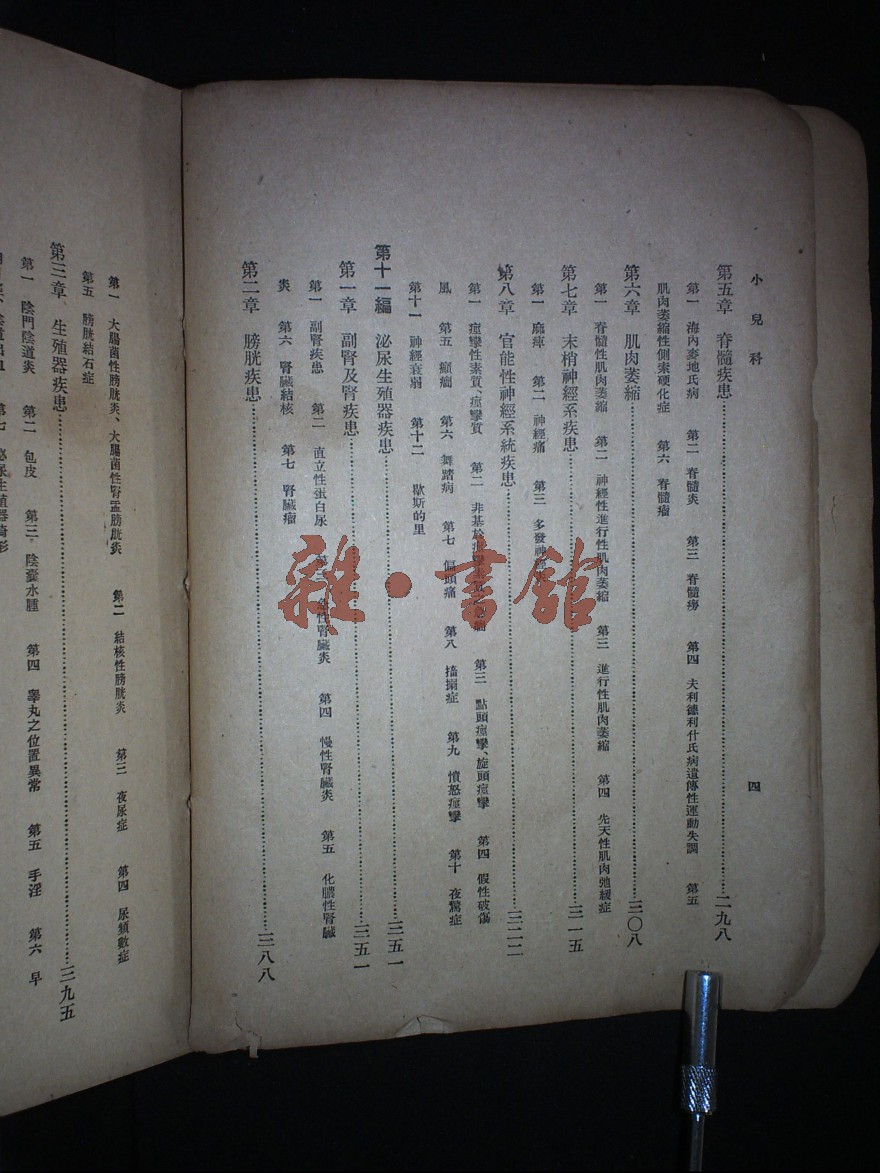 小兒科
四
第五章 脊髓疾患……二九八
第一 海內麥地氏病 第二 脊髓炎 第三 脊髓癆 第四 夫利德利什氏病遺傳性運動失調 第五
肌肉萎縮性側索硬化症 第六 脊髓瘤
第六章 肌肉萎縮……三〇八
第一 脊髓性肌肉萎縮 第二 神經性進行性肌肉萎縮 第三 進行性肌肉萎縮 第四 先天性肌肉弛緩症
第七章 末梢神經系疾患……三一五
第一 麻痺 第二 神經痛 第三 多發神經
第八章 官能性神經系統疾患……三二二
第一 痙攣性素質、痙攣質 第二 非基於痙攣 第三 點頭痙攣、旋頭痙攣 第四 假性破傷
風 第五 癲癇 第六 舞蹈病 第七 偏頭痛 第八 搐搦症 第九 憤怒痙攣 第十 夜驚症
第十一 神經衰弱 第十二 歇斯的里
第十一編 泌尿生殖器疾患……三五一
第一章 副腎及腎疾患……三五一
第一 副腎疾患 第二 直立性蛋白尿 第三 急性腎臟炎 第四 慢性腎臟炎 第五 化膿性腎臟
炎 第六 腎臟結核 第七 腎臟瘤
第二章 膀胱疾患……三八八
第一 大腸菌性膀胱炎、大腸菌性腎盂膀胱炎 第二 結核性膀胱炎 第三 夜尿症 第四 尿頻數症
第五 膀胱結石症
第三章 生殖器疾患……三九五
第一 陰門陰道炎 第二 包皮 第三 陰囊水腫 第四 睾丸之位置異常 第五 手淫 第六 早
第七 泌尿生殖器畸形
雜·書館